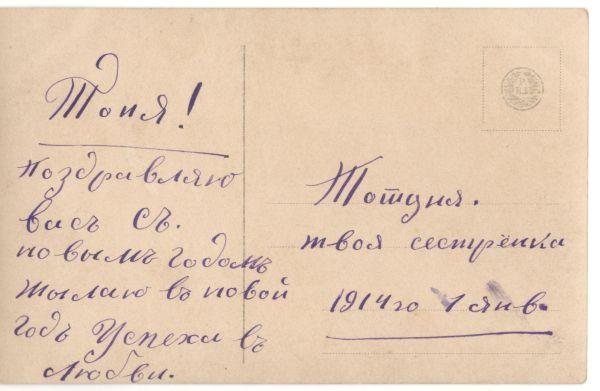 Тоня!
Поздравляю
васъ съ.
новымъ годомъ
жылаю въ новой
годъ Успеха въ
Любви.
твоя сестрёнка
1914го 1 янв.